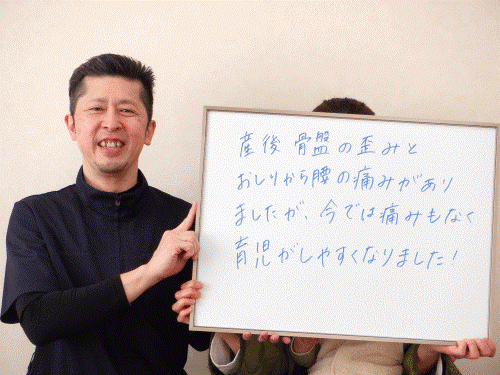 産後骨盤の歪みと
おしりから腰の痛みがあり
ましたが、今では痛みもなく
育児がしやすくなりました!